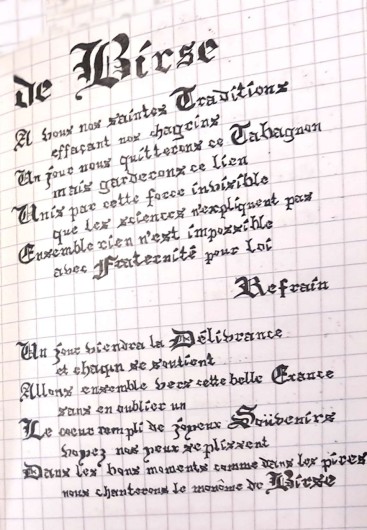 de Birse
A vous nos saintes Traditions
effaçant nos chagrins
Un jour nous quitterons ce Tabagnon
mais garderons ce lien
Unis par cette force invisible
que les sciences n'expliquent pas
Ensemble rien n'est impossible
avec Fraternité pour loi
Refrain
Un jour viendra la Délivrance
et chaqun se soutient
Allons ensemble vers cette belle Exance
sans en oublier un
Le coeur rempli de joyeux Souvenirs
voyez nos yeux se plissent
Dans les bons moments comme dans les pires
nous chanterons le monôme de Birse